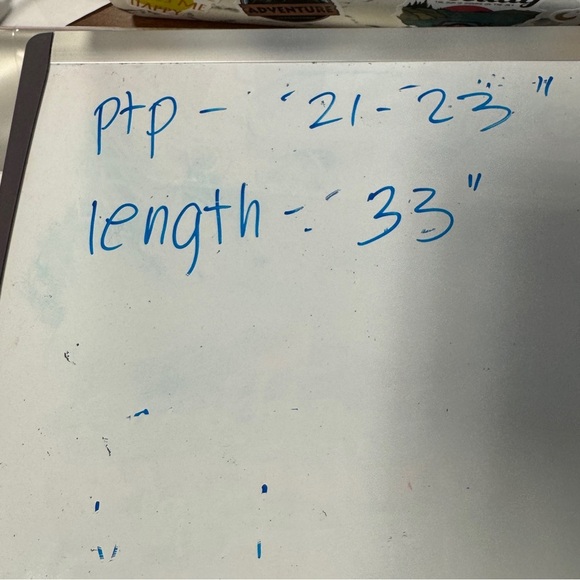 HAPPY
ADVENTURE
ptp - 21-23"
length - 33"